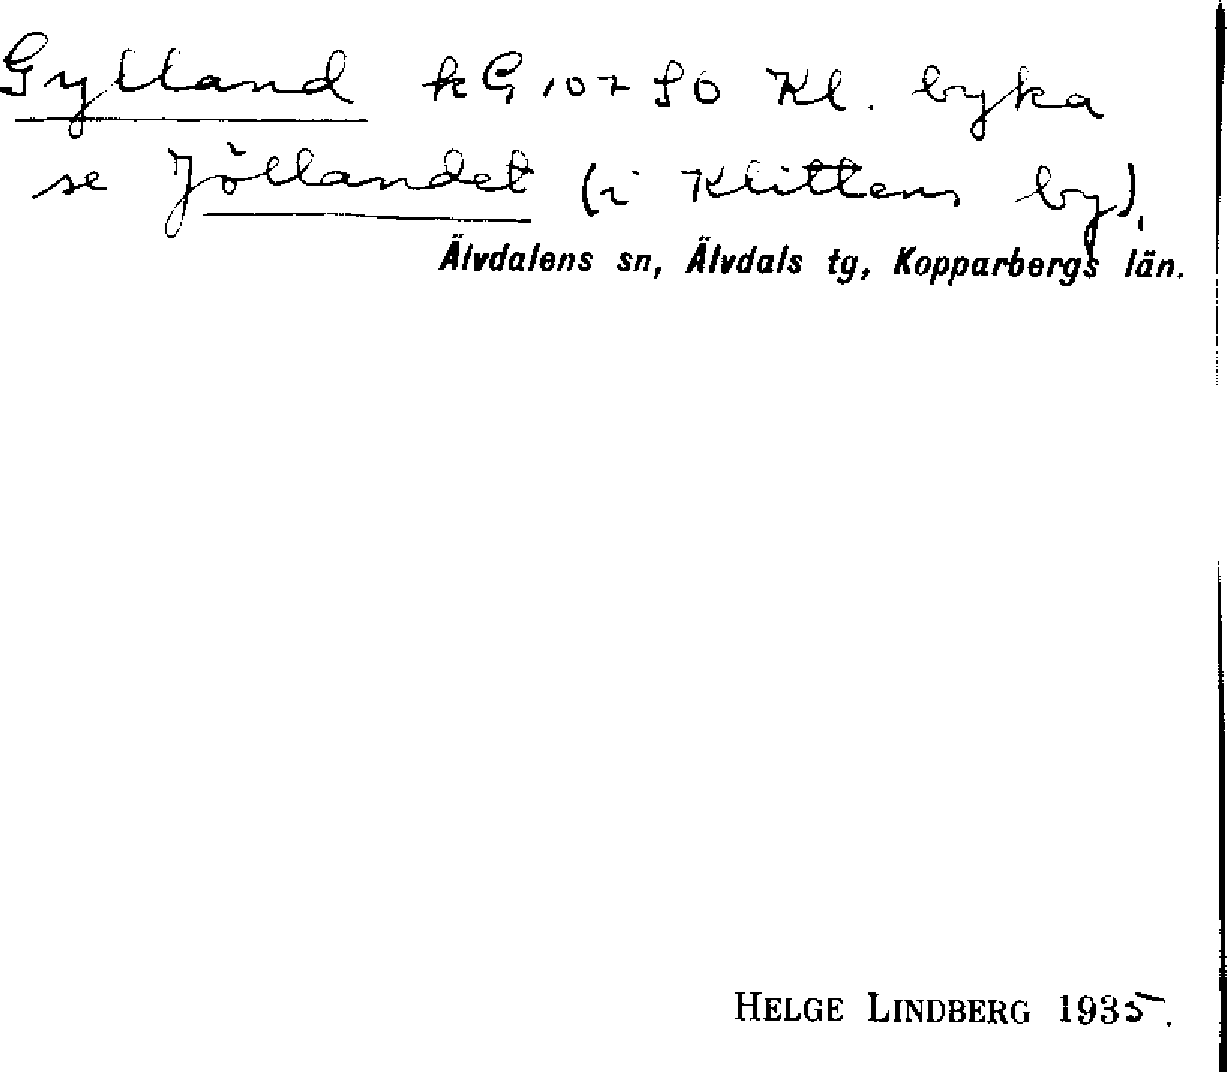 Gylland kG 107 90 Kl. byka
se Jöllandet (i Klittens by).
Älvdalens sn, Älvdals tg, Kopparbergs län.
HELGE LINDBERG 1935.